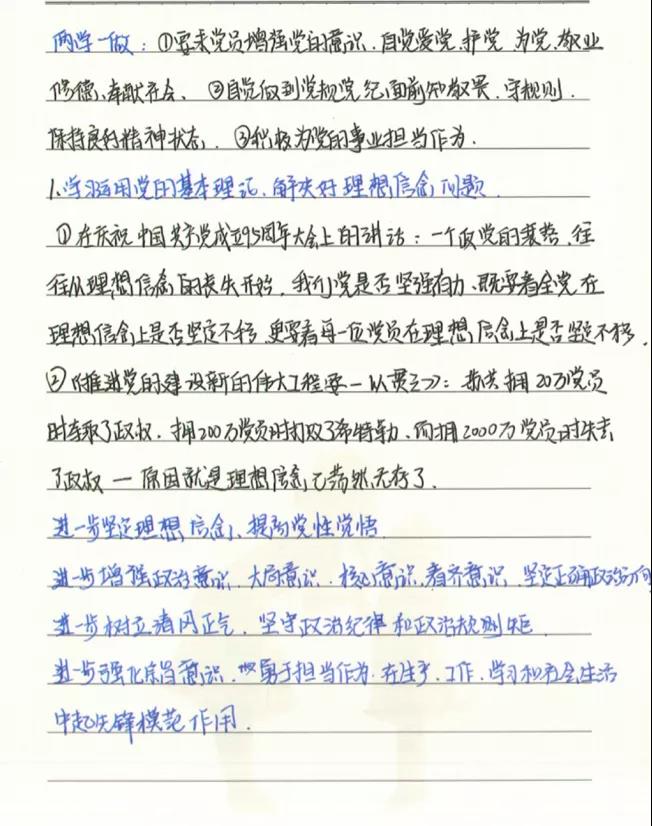 两学一做：①要求党员增强党的意识、自觉爱党、护党、为党、敬业
修德、奉献社会、②自觉做到党规党纪面前知敬畏、守规则、
保持良好精神状态、③积极为党的事业担当作为.
1.学习运用党的基本理论、解决好理想信念问题.
①在庆祝中国共产党成立95周年大会上的讲话：一个政党的衰落、往
往从理想信念的丧失开始，我们党是否坚强有力、既要看全党在
理想信念上是否坚定不移，更要看每一位党员在理想信念上是否坚定不移.
②《推进党的建设新的伟大工程要一以贯之》：苏共拥20万党员
时夺取了政权、拥200万党员时打败了希特勒、而拥2000万党员时失去
了政权 — 原因就是理想信念已荡然无存了.
进一步坚定理想信念、提高党性觉悟
进一步增强政治意识、大局意识、核心意识、看齐意识、坚定正确政治方向
进一步树立清风正气、坚守政治纪律和政治规则矩
进一步强化宗旨意识、勇于担当作为.在生产、工作、学习和社会生活
中起先锋模范作用.